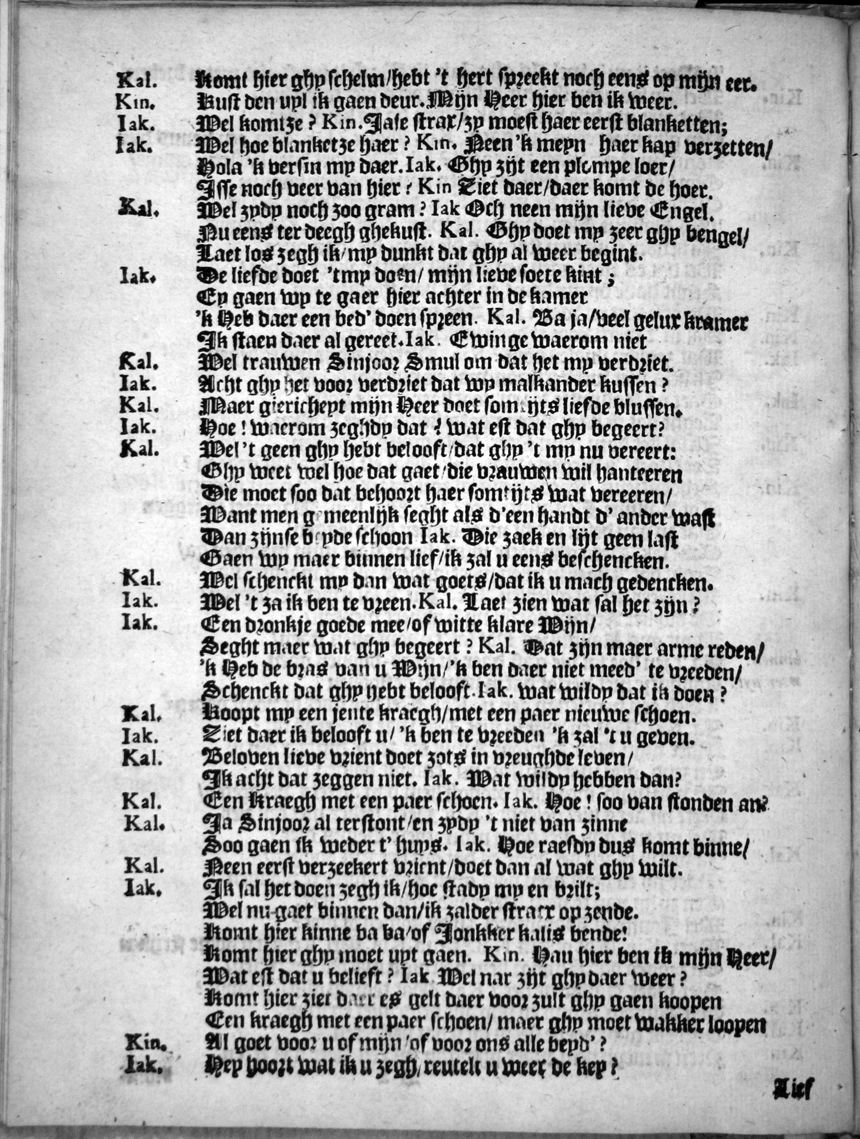 Kal. Komt hier ghy schelm/hebt 't hert spreekt noch eens op mijn eer.
Kin. Kust den uyl ik gaen deur. Mijn Heer hier ben ik weer.
Iak. Wel komtze? Kin. Jase strax/zy moest haer eerst blanketten;
Iak. Wel hoe blanketze haer? Kin. Neen 'k meyn haer kap verzetten/
Hola 'k versin my daer. Iak. Ghy zijt een plompe loer/
Isse noch veer van hier? Kin Ziet daer/daer komt de hoer.
Kal. Wel zydy noch zoo gram? Iak Och neen mijn lieve Engel.
Nu eens ter deegh ghekust. Kal. Ghy doet my zeer ghy bengel/
Laet los zegh ik/my dunkt dat ghy al weer begint.
Iak. De liefde doet 'tmy doen/ mijn lieve soete kint;
Ey gaen wy te gaer hier achter in de kamer
'k Heb daer een bed' doen spreen. Kal. Ba ja/veel gelux kramer
Ik staen daer al gereet. Iak. Ewinge waerom niet
Kal. Wel trauwen Sinjoor Smul om dat het my verdriet.
Iak. Acht ghy het voor verdriet dat wy malkander kussen?
Kal. Maer giericheyt mijn Heer doet somtijts liefde blussen.
Iak. Hoe! waerom zeghdy dat? wat est dat ghy begeert?
Kal. Wel 't geen ghy hebt belooft/dat ghy 't my nu vereert:
Ghy weet wel hoe dat gaet/die vrauwen wil hanteeren
Die moet soo dat behoort haer somtijts wat vereeren/
Want men gemeenlijk seght als d'een handt d' ander wast
Dan zijnse beyde schoon Iak. Die zaek en lijt geen last
Gaen wy maer binnen lief/ik zal u eens beschencken.
Kal. Wel schenckt my dan wat goets/dat ik u mach gedencken.
Iak. Wel 't za ik ben te vreen. Kal. Laet zien wat sal het zijn?
Iak. Een dronkje goede mee/of witte klare Wijn/
Seght maer wat ghy begeert? Kal. Dat zijn maer arme reden/
'k Heb de bras van u Wijn/'k ben daer niet meed' te vreeden/
Schenckt dat ghy hebt belooft. Iak. wat wildy dat ik doen?
Kal. Koopt my een jente kraegh/met een paer nieuwe schoen.
Iak. Ziet daer ik belooft u/ 'k ben te vreeden 'k zal 't u geven.
Kal. Beloven lieve vrient doet zots in vreughde leven/
Ik acht dat zeggen niet. Iak. Wat wildy hebben dan?
Kal. Een kraegh met een paer schoen. Iak. Hoe! soo van stonden an?
Kal. Ja Sinjoor al terstont/en zydy 't niet van zinne
Soo gaen ik weder t' huys. Iak. Hoe raesdy dus komt binne/
Kal. Neen eerst verzeekert vrient/doet dan al wat ghy wilt.
Iak. Ik sal het doen zegh ik/hoe stady my en brilt;
Wel nu gaet binnen dan/ik zalder straex op zende.
Komt hier kinne ba ba/of Jonkker kalis bende!
Komt hier ghy moet uyt gaen. Kin. Hau hier ben ik mijn Heer/
Wat est dat u belieft? Iak Wel nar zijt ghy daer weer?
Komt hier ziet daer es gelt daer voor zult ghy gaen koopen
Een kraegh met een paer schoen/ maer ghy moet wakker loopen
Kin. Al goet voor u of mijn/of voor ons alle beyd'?
Iak. Hey hoort wat ik u zegh, reutelt u weer de key?
Lief